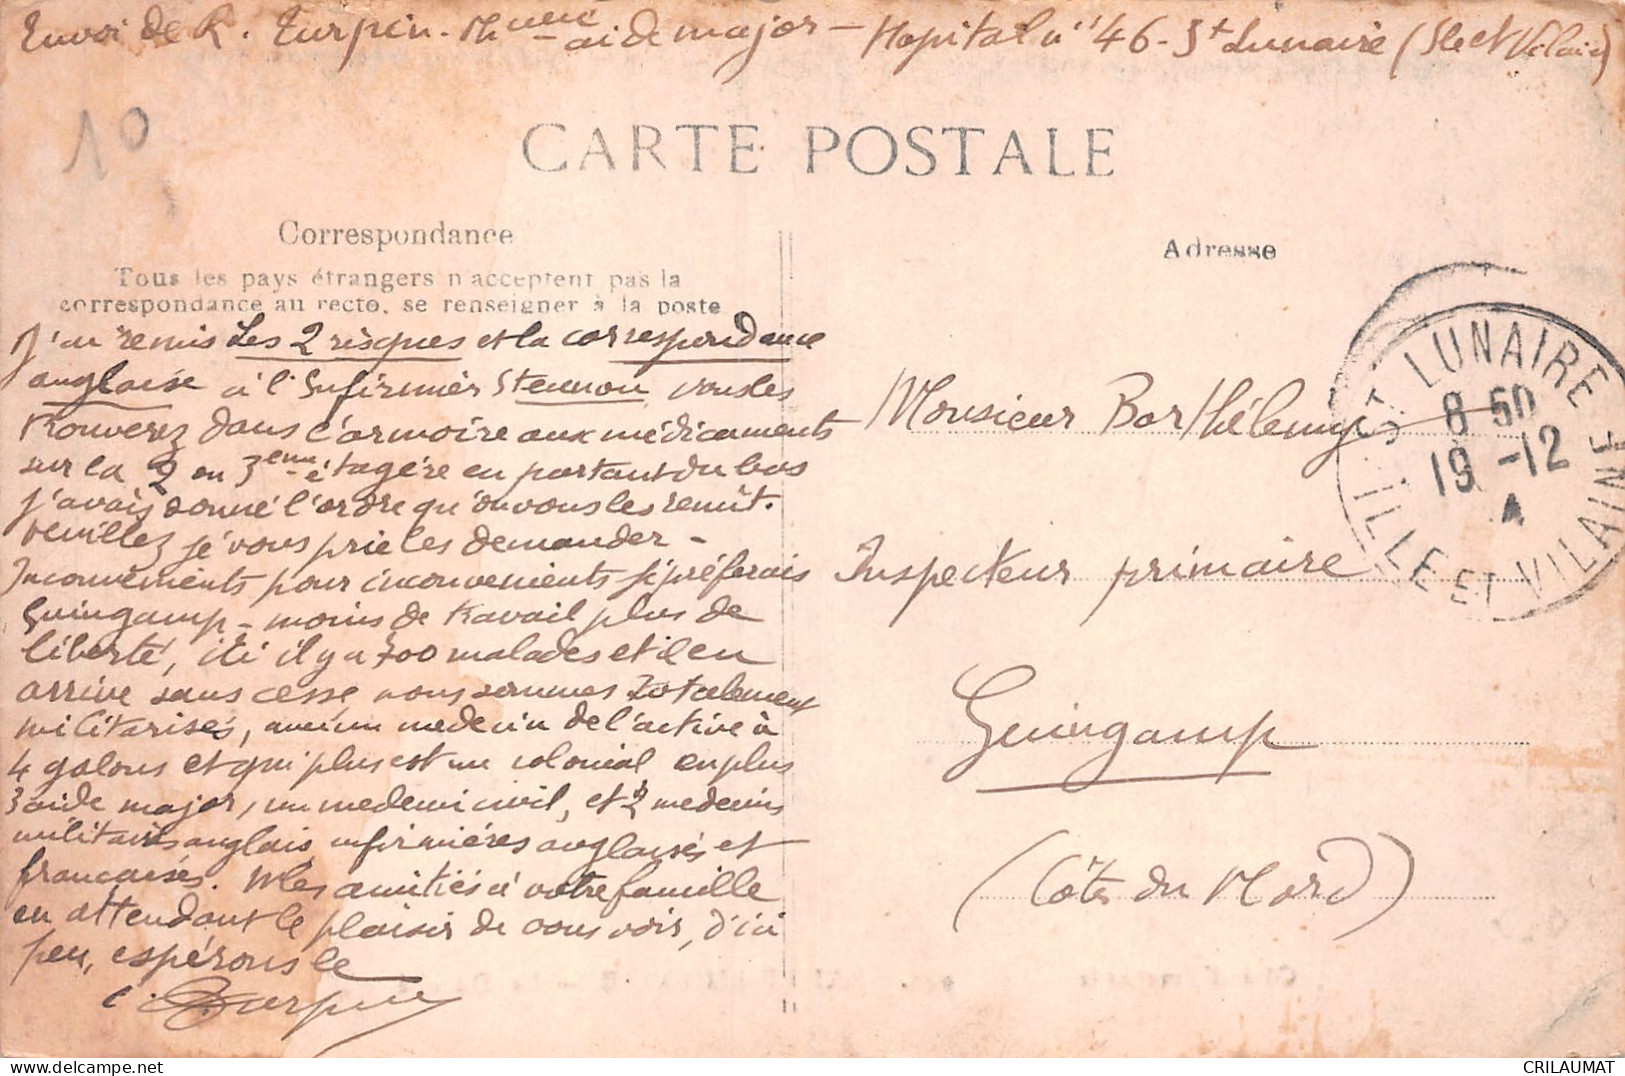 Envoi de R. Turpin. Phcien aide major – Hopital n° 46 - St Lunaire (Ille et Vilaine)
10
CARTE POSTALE
Correspondance
Tous les pays étrangers n'acceptent pas la
correspondance au recto, se renseigner à la poste
Adresse
J'ai remis les 2 risques et la correspondance
anglaise à l'infirmier Stennou vous les
trouverez dans l'armoire aux médicaments
sur la 2 ou 3eme étagère en partant du bas
j'avais donné l'ordre qu'on vous les remît.
veuillez je vous prie les demander –
Inconvénients pour inconvenients je préferais
Guingamp – moins de travail plus de
liberté, ici il y a 700 malades et il en
arrive sans cesse nous sommes totalement
militarisés, avec un medecin de l'active à
4 galons et qui plus est un colonial en plus
3 aide major, un medecin civil, et 2 medecins
militaires anglais infirmières anglaises et
françaises. Mles amitiés à votre famille
en attendant le plaisir de vous voir, d'ici
peu, espérons le
Turpin
Monsieur Barthélemy
Inspecteur primaire
Guingamp
(Côtes du Nord)
ST LUNAIRE
8 50
19 -12
ILLE ET VILAINE
CRILAUMAT